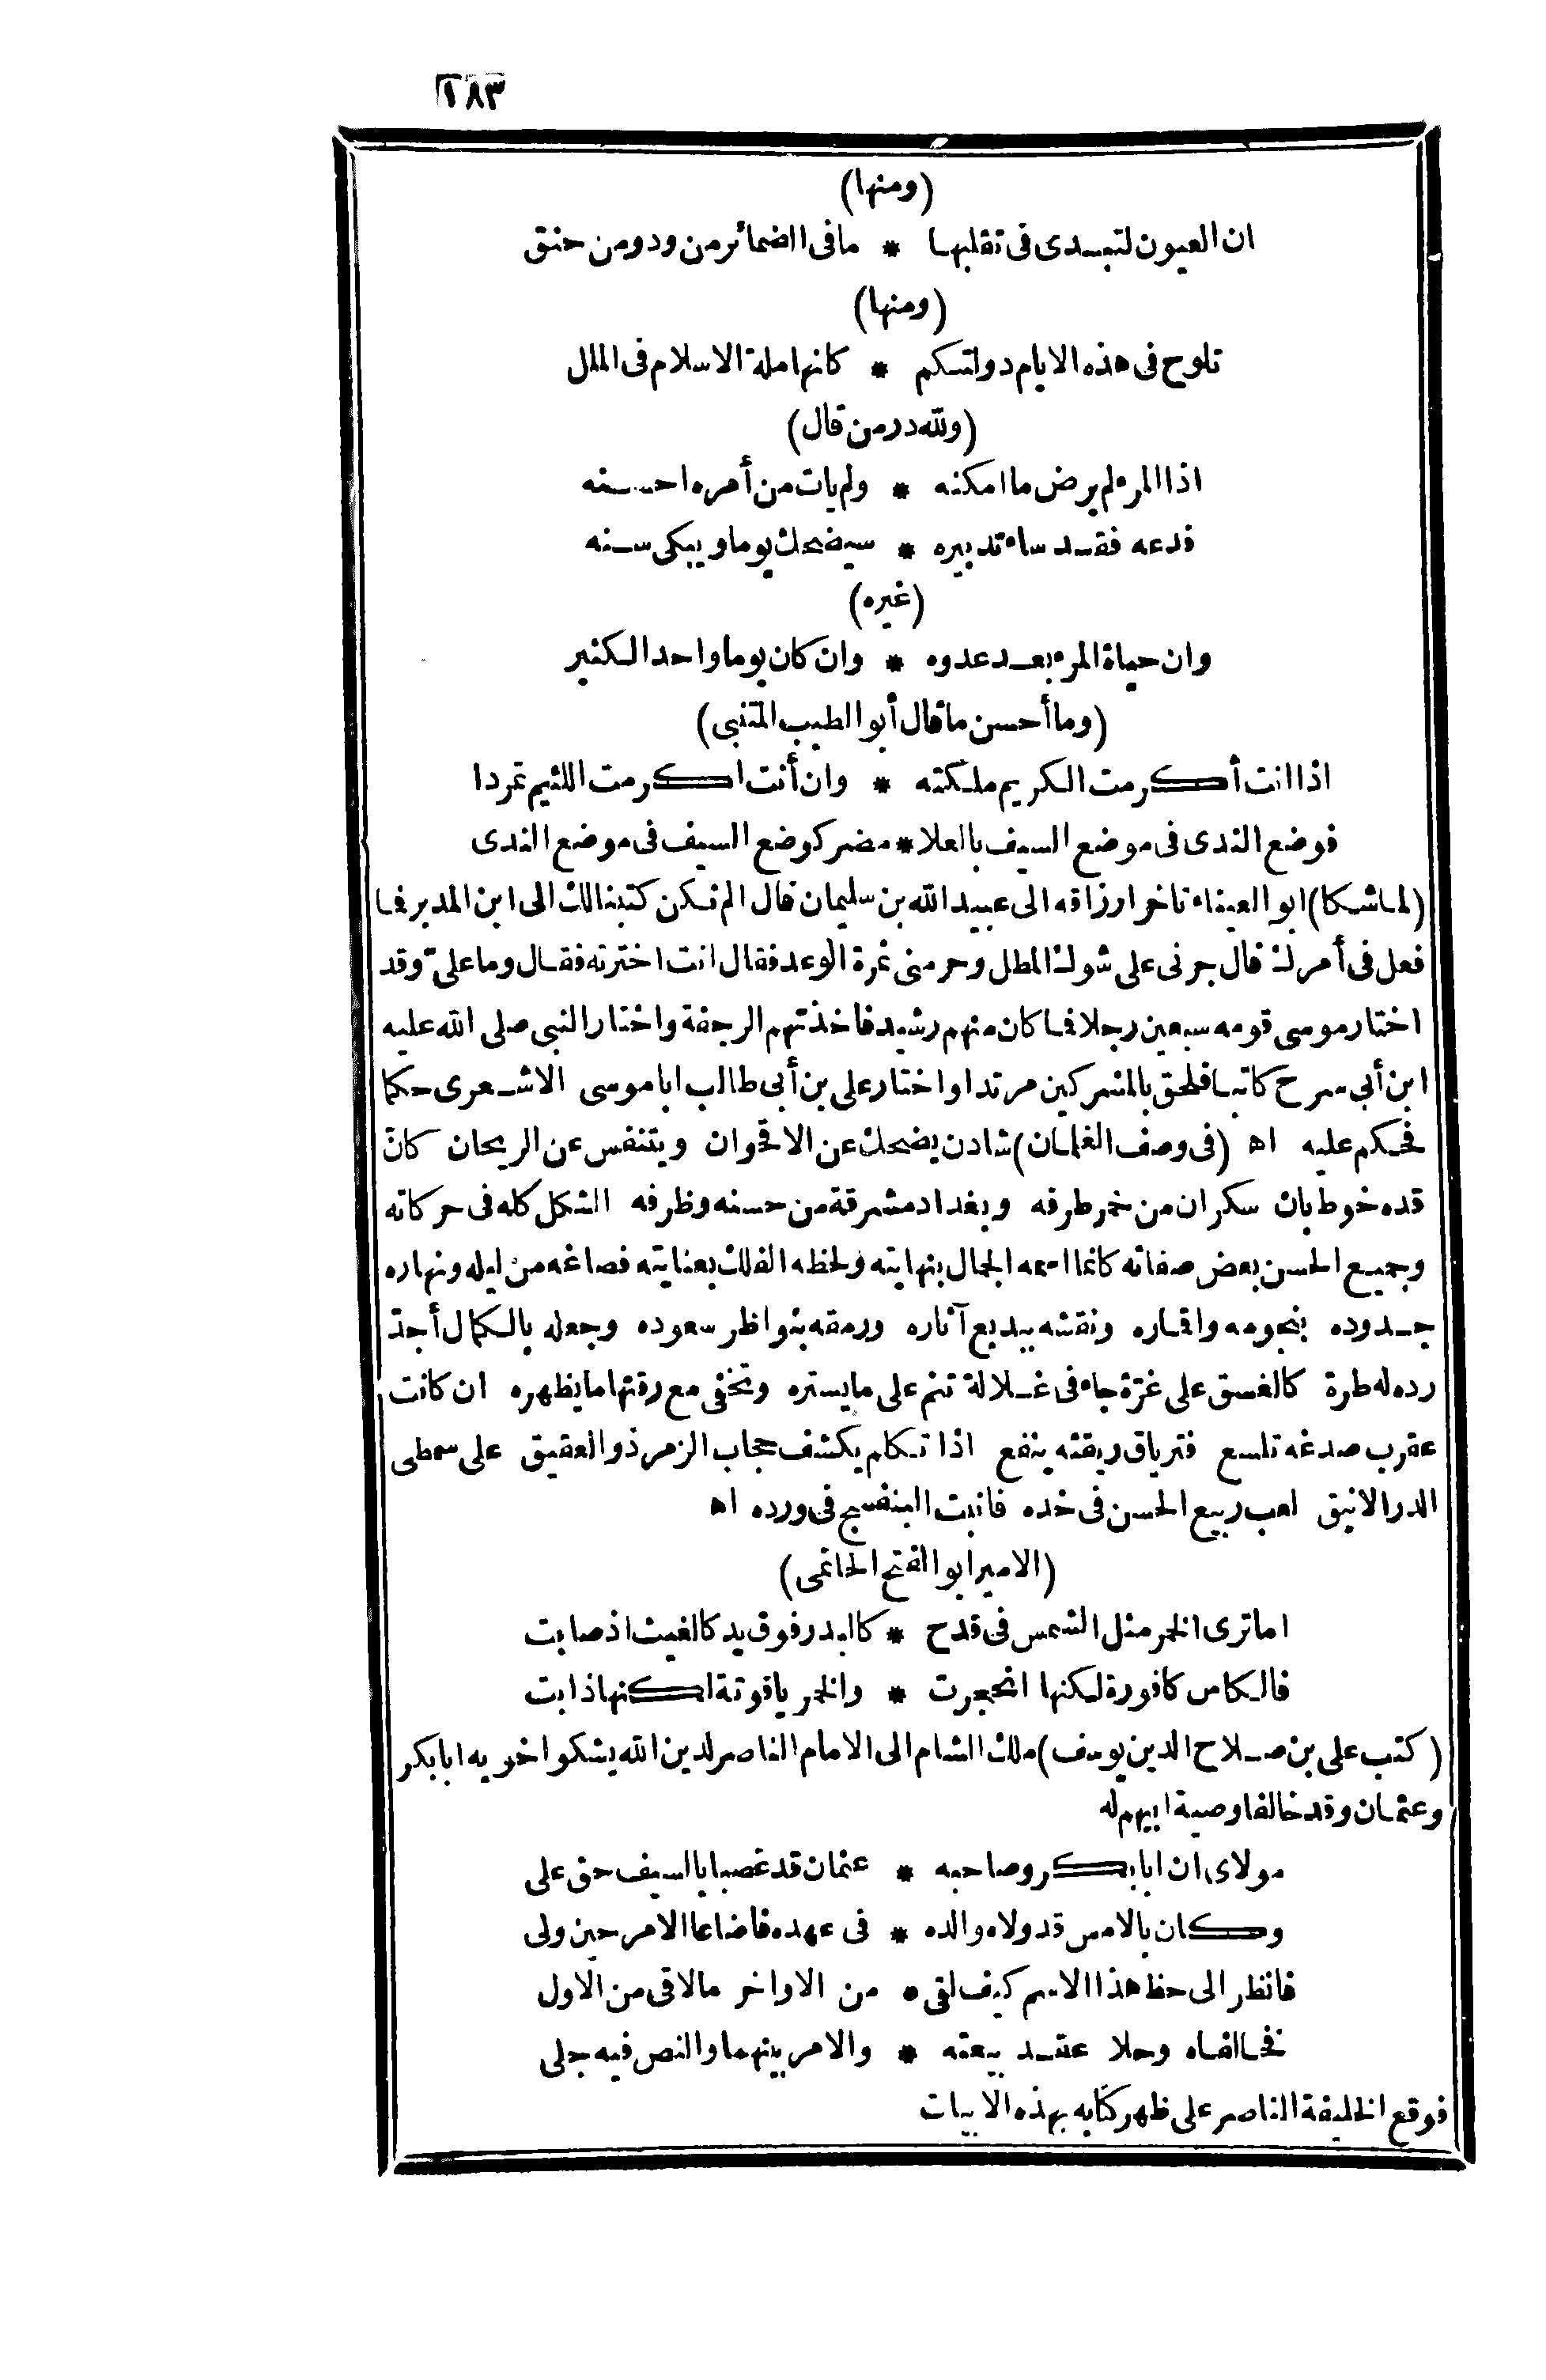 ١٨٣
(ومنها)
ان العيون لتبدى فى تقلبها * مافى الضمائر من ود ومن حنق
(ومنها)
تلوح فى هذه الايام دولتكم * كانها ملة الاسلام فى الملل
(ولله در من قال)
اذا المرء لم يرض ما امكنه * ولم يات من أمره احسنه
فدعه فقد ساء تدبيره * سيضحك يوما ويبكى سنه
(غيره)
وان حياة المرء بعد عدوه * وان كان يوما واحدا لكثير
(وما أحسن ما قال أبو الطيب المتنبى)
اذا انت أكرمت الكريم ملكته * وان أنت اكرمت اللئيم تمردا
فوضع الندى فى موضع السيف بالعلا * مضر كوضع السيف فى موضع الندى
(لما شكا) ابو العيناء تاخر ارزاقه الى عبيد الله بن سليمان قال الم نكن كتبنا لك الى ابن المدبر فما
فعل فى أمرك قال جرنى على شوك المطل وحرمنى ثمرة الوعد فقال انت اخترته فقال وما علىّ وقد
اختار موسى قومه سبعين رجلا فما كان منهم رشيد فاخذتهم الرجفة واختار النبى صلى الله عليه
ابن أبى سرح كاتبا فلحق بالمشركين مرتدا واختار على بن أبى طالب ابا موسى الاشعرى حكما
فحكم عليه اه (فى وصف الغلمان) شادن يضحك عن الاقحوان ويتنفس عن الريحان كانّ
قده خوط بان سكران من خمر طرفه وبغداد مشرقة من حسنه وظرفه الشكل كله فى حركاته
وجميع الحسن بعض صفاته كانما وسمه الجمال بنهايته ولحظه الفلك بعنايته فصاغه من ليله ونهاره
حدوده بنجومه واقماره ونقشه ببديع آثاره ورمقه بنواظر سعوده وجعله بالكمال أجدّ
رده له طرة كالغسق على غرّة جاء فى غلالة تنم على ما يستره وتخفى مع رقتها ما يظهره ان كانت
عقرب صدغه تلسع فترياق ريقته ينفع اذا تكلم يكشف حجاب الزمرذ والعقيق على سمطى
الدر الانيق لعب ربيع الحسن فى خده فانبت البنفسج فى ورده اه
(الامير ابو الفتح الحاتمى)
اما ترى الخمر مثل الشمس فى قدح * كالبدر فوق يد كالغيث اذ صابت
فالكاس كافورة لكنها انحجرت * والخمر ياقوتة لكنها ذابت
(كتب على بن صلاح الدين يوسف) ملك الشام الى الامام الناصر لدين الله يشكو اخويه ابا بكر
وعثمان وقد خالفا وصية ابيهم له
مولاى ان ابا بكر وصاحبه * عثمان قد غصبا بالسيف حق على
وكان بالامس قد ولاه والده * فى عهده فاضاعا الامر حين ولى
فانظر الى حظ هذا الاسم كيف لقى * من الاواخر ما لاقى من الاول
فخالفاه وحلا عقد بيعته * والامر بينهما والنص فيه جلى
فوقع الخليفة الناصر على ظهر كتابه بهذه الابيات